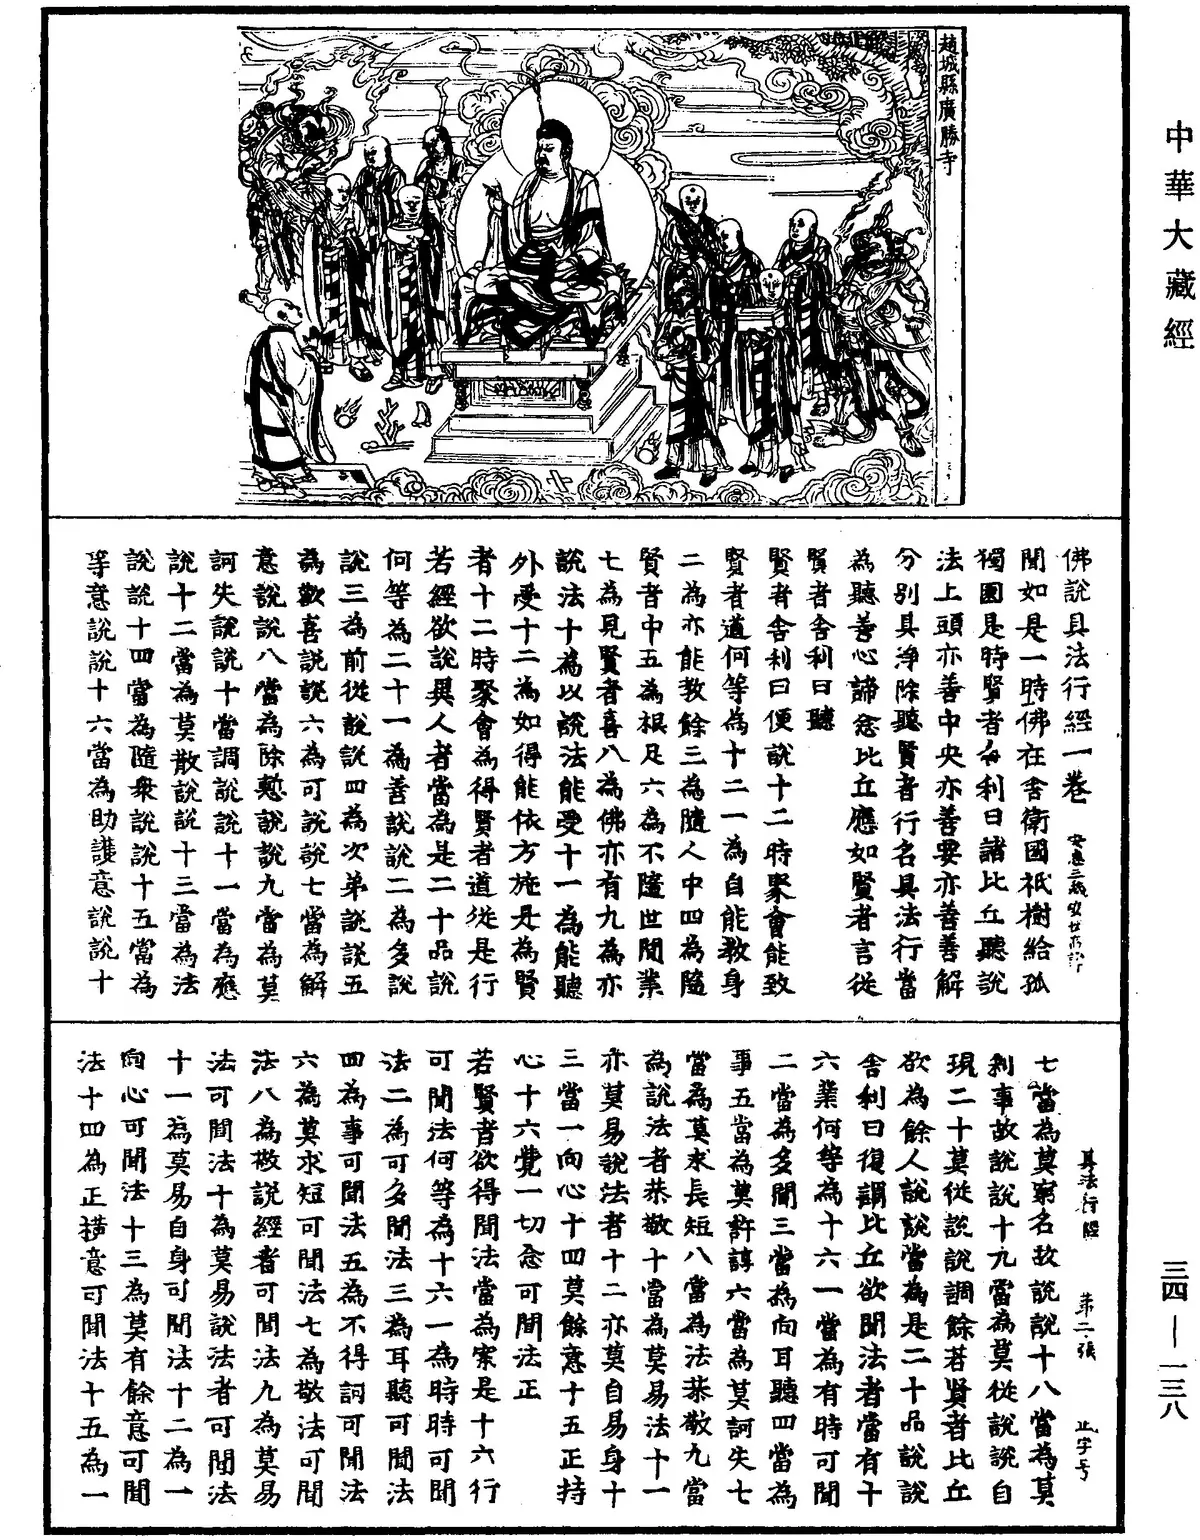 中華大藏經
趙城縣廣勝寺
佛說具法行經一卷
聞如是一時佛在舍衛國祇樹給孤
獨園是時賢者舍利曰諸比丘聽說
法上頭亦善中央亦善要亦善善解
分別具淨除聽賢者行名具法行當
為聽善心諦念比丘應如賢者言從
賢者舍利曰聽
賢者舍利曰便說十二時聚會能致
賢者道何等為十二一為自能教身
二為亦能教餘三為隨人中四為隨
賢者中五為根足六為不隨世閒業
七為見賢者喜八為佛亦有九為亦
說法十為以說法能受十一為能聽
外受十二為如得能依方施是為賢
者十二時聚會為得賢者道從是行
若經欲說與人者當為是二十品說
何等為二十一為善說說二為多說
說三為前從說說四為次弟說說五
為歡喜說說六為可說說七當為解
意說說八當為除慙說說九當為莫
訶失說說十當調說說十一當為應
說十二當為莫散說說十三當為法
說說十四當為隨衆說說十五當為
等意說說十六當為助護意說說十
七當為莫窮名故說說十八當為莫
利事故說說十九當為莫從說說自
現二十莫從說說調餘若賢者比丘
欲為餘人說說當為是二十品說說
舍利曰復謂比丘欲聞法者當有十
六業何等為十六一當為有時可聞
二當為多聞三當為向耳聽四當為
事五當為莫訴諄六當為莫訶失七
當為莫求長短八當為法恭敬九當
為說法者恭敬十當為莫易法十一
亦莫易說法者十二亦莫自易身十
三當一向心十四莫餘意十五正持
心十六覺一切念可聞法正
若賢者欲得聞法當為案是十六行
可聞法何等為十六一為時時可聞
法二為可多聞法三為耳聽可聞法
四為事可聞法五為不得訶可聞法
六為莫求短可聞法七為敬法可聞
法八為敬說經者可聞法九為莫易
法可聞法十為莫易說法者可聞法
十一為莫易自身可聞法十二為一
向心可聞法十三為莫有餘意可聞
法十四為正橫意可聞法十五為一
具法行經　第二張　止字号
三四—一三八